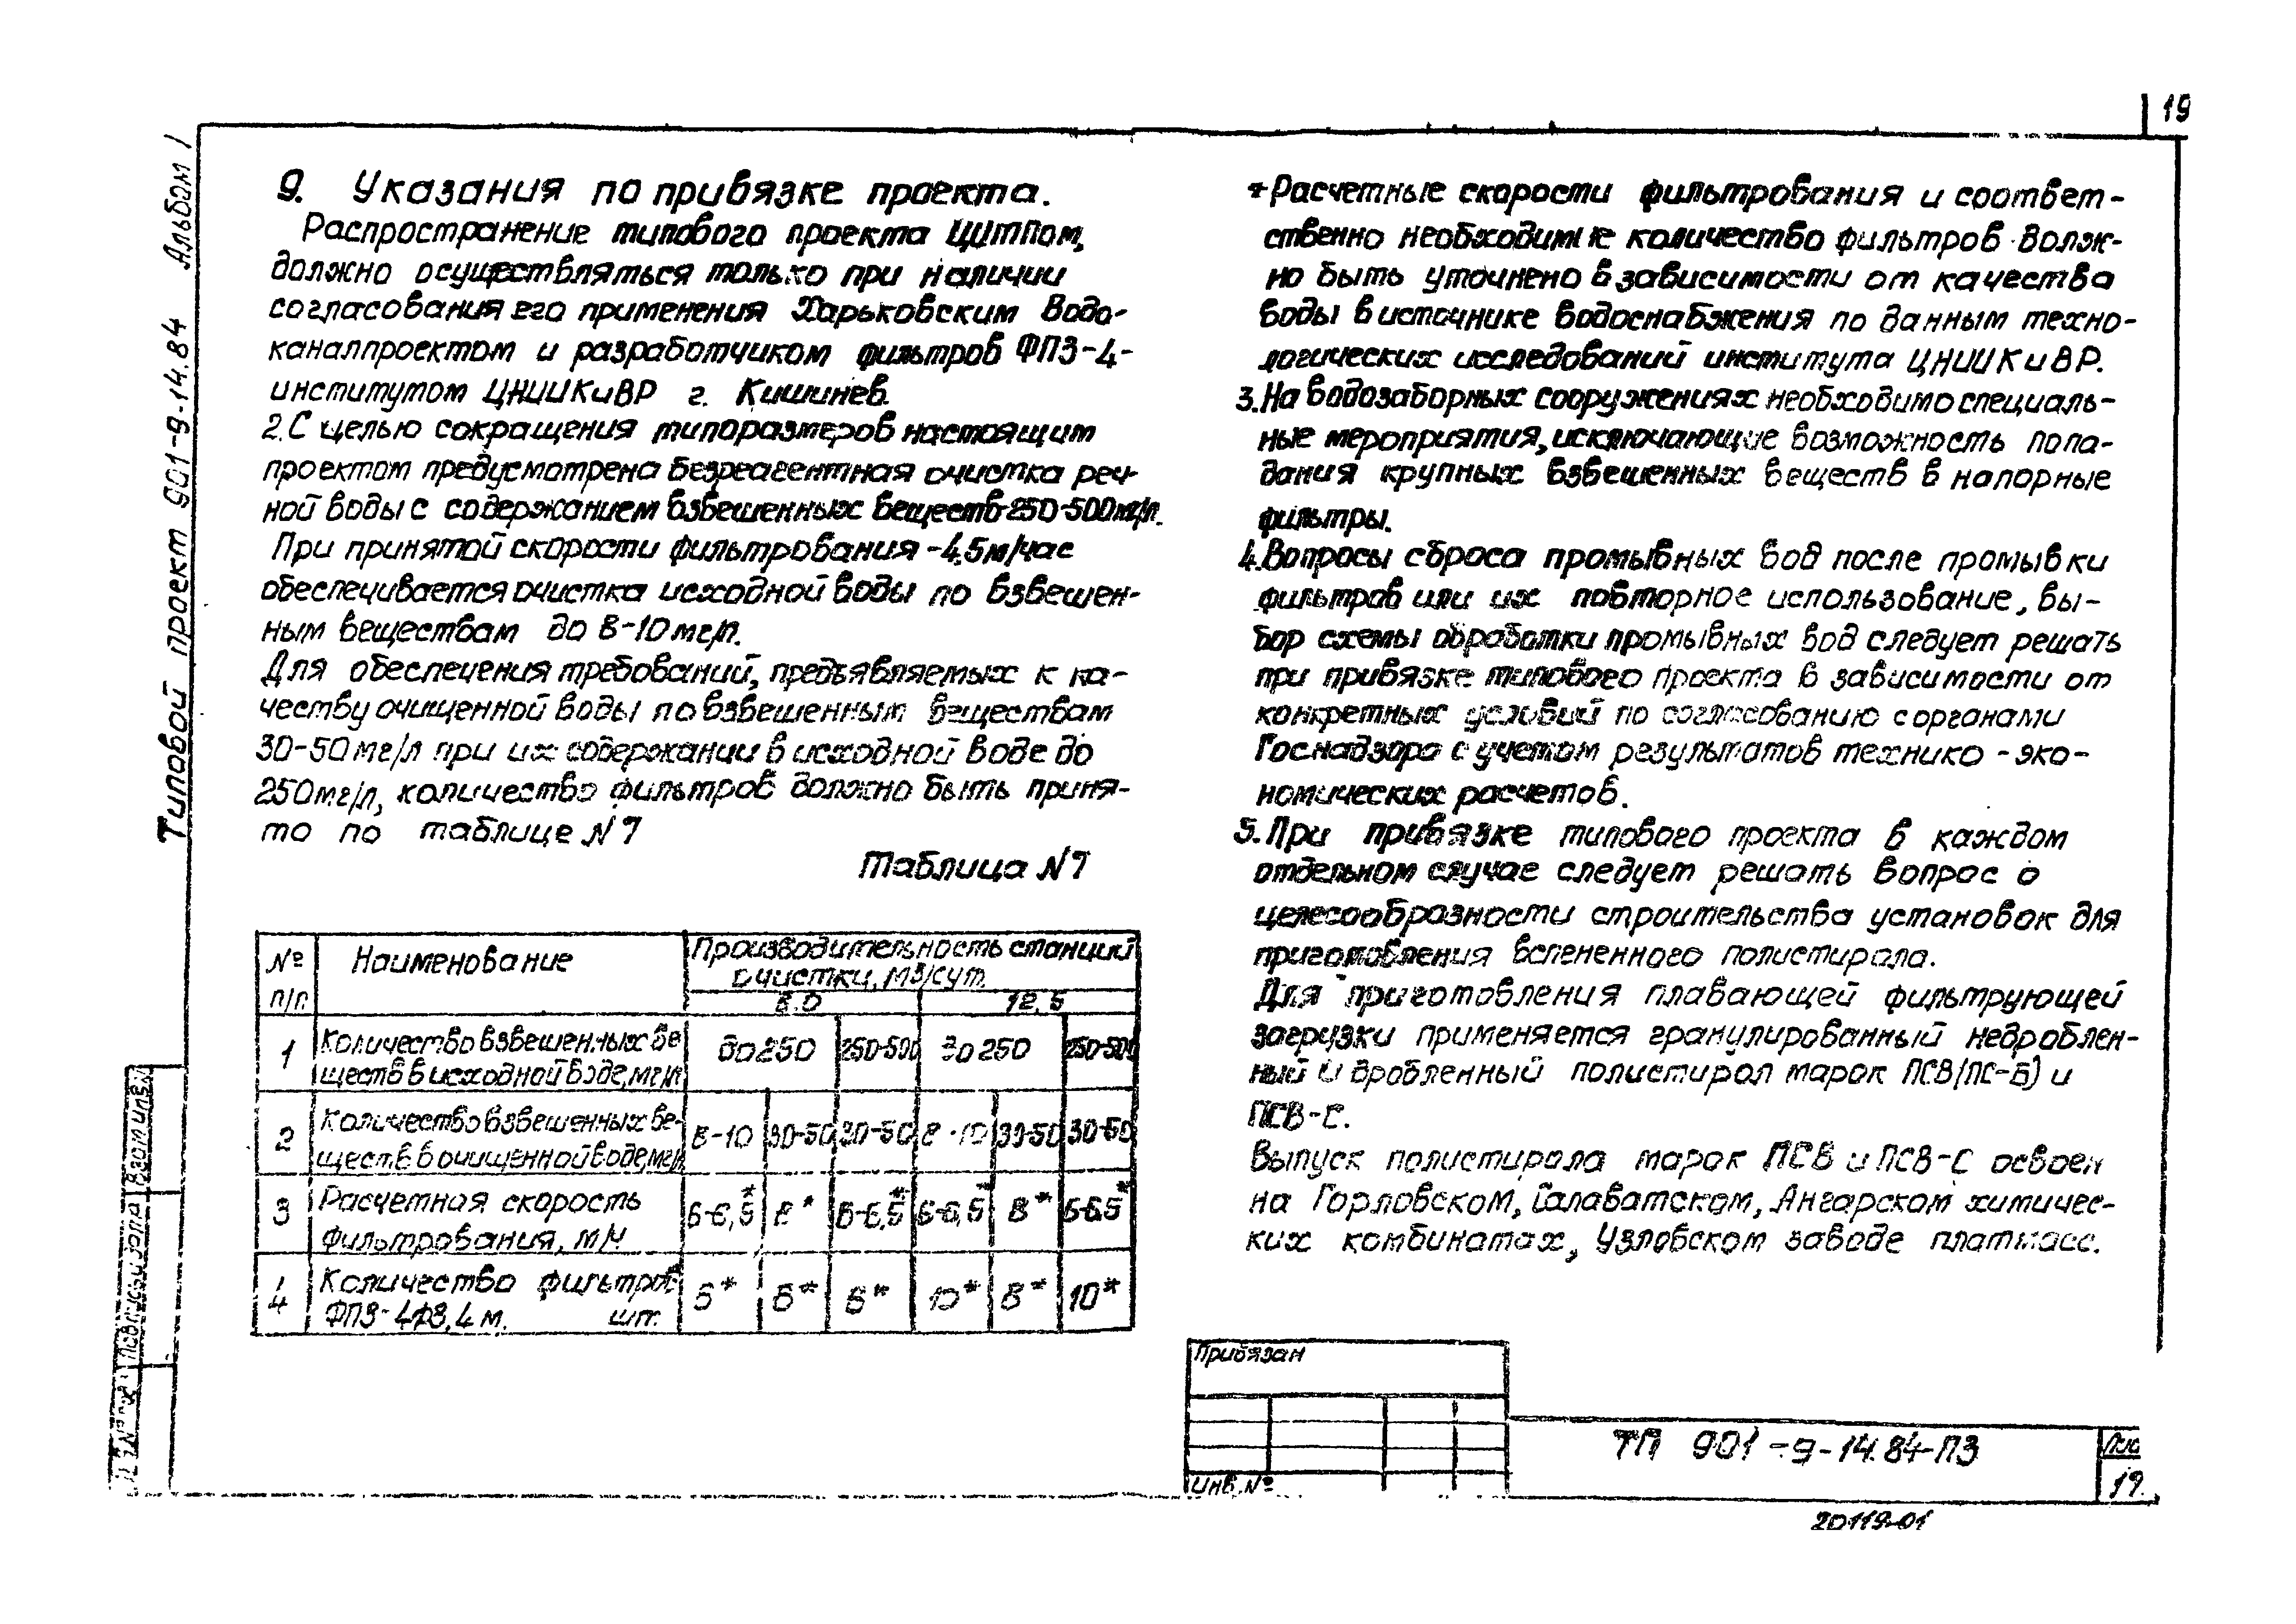 19
Типовой проект 901-9-14.84 Альбом I
9. Указания по привязке проекта.
Распространение типового проекта ЦИТПом,
должно осуществляться только при наличии
согласования его применения Харьковским Водо-
каналпроектом и разработчиком фильтров ФПЗ-4-
институтом ЦНИИКиВР г. Кишинев.
2. С целью сокращения типоразмеров настоящим
проектом предусмотрена безреагентная очистка реч-
ной воды с содержанием взвешенных веществ-250-500мг/л.
При принятой скорости фильтрования -4,5м/час
обеспечивается очистка исходной воды по взвешен-
ным веществам до 8-10мг/л.
Для обеспечения требований, предъявляемых к ка-
честву очищенной воды по взвешенным веществам
30-50мг/л при их содержании в исходной воде до
250мг/л, количество фильтров должно быть приня-
то по таблице N 7
Таблица N 7
№ п/п
Наименование
Производительность станций
очистки, м3/сут.
8.0 12,5
1 Количество взвешенных ве-
ществ в исходной воде, мг/л
до 250 250-500 до 250 250-500
2 Количество взвешенных ве-
ществ в очищенной воде, мг/л
8-10 30-50 30-50 8-10 30-50 30-50
3 Расчетная скорость
фильтрования, м/ч
8* 8*
4 Количество фильтров
ФПЗ-4 шт.
10* 10*
* Расчетные скорости фильтрования и соответ-
ственно необходимые количество фильтров долж-
но быть уточнено в зависимости от качества
воды в источнике водоснабжения по данным техно-
логических исследований института ЦНИИКиВР.
3. На водозаборных сооружениях необходимо специаль-
ные мероприятия, исключающие возможность попа-
дания крупных взвешенных веществ в напорные
фильтры.
4. Вопросы сброса промывных вод после промывки
фильтров или их повторное использование, вы-
бор схемы обработки промывных вод следует решать
при привязке типового проекта в зависимости от
конкретных условий по согласованию с органами
Госнадзора с учетом результатов технико-эко-
номических расчетов.
5. При привязке типового проекта в каждом
отдельном случае следует решать вопрос о
целесообразности строительства установок для
приготовления вспененного полистирола.
Для приготовления плавающей фильтрующей
загрузки применяется гранулированный недроблен-
ный и дробленный полистирол марок ПСВ/ПС-Б) и
ПСВ-С.
Выпуск полистирола марок ПСВ и ПСВ-С освоен
на Горловском, Салаватском, Ангарском химичес-
ких комбинатах, Узловском заводе платмасс.
Привязан
Инв. №
ТП 901-9-14.84-ПЗ
Лис
19
20119-01